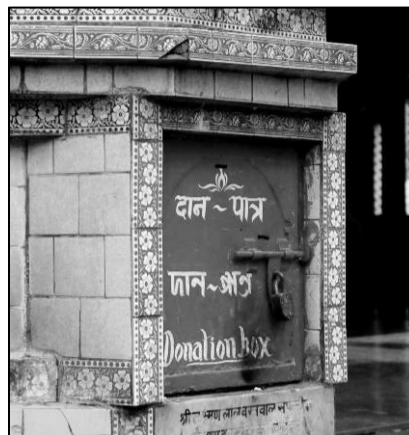 दान ~ पात्र
দান ~ পাত্র
Donation box
श्री